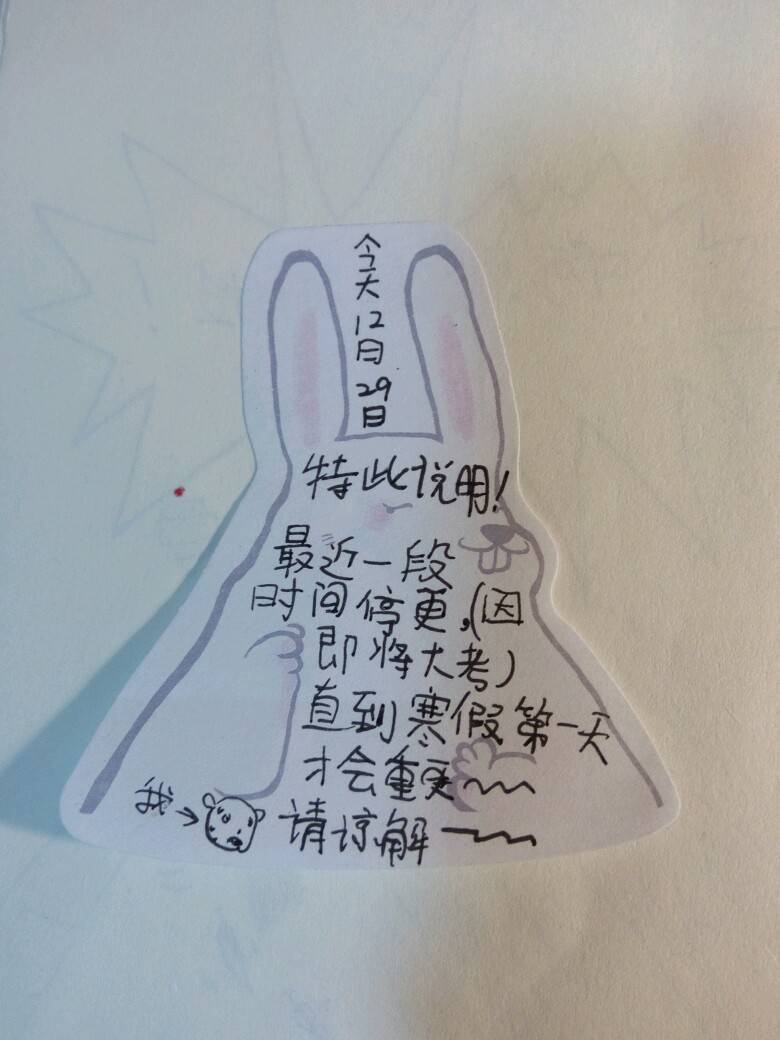 今天12月29日
特此说明!
最近一段
时间停更,(因
即将大考)
直到寒假第一天
才会重更~~
我→
请谅解~~